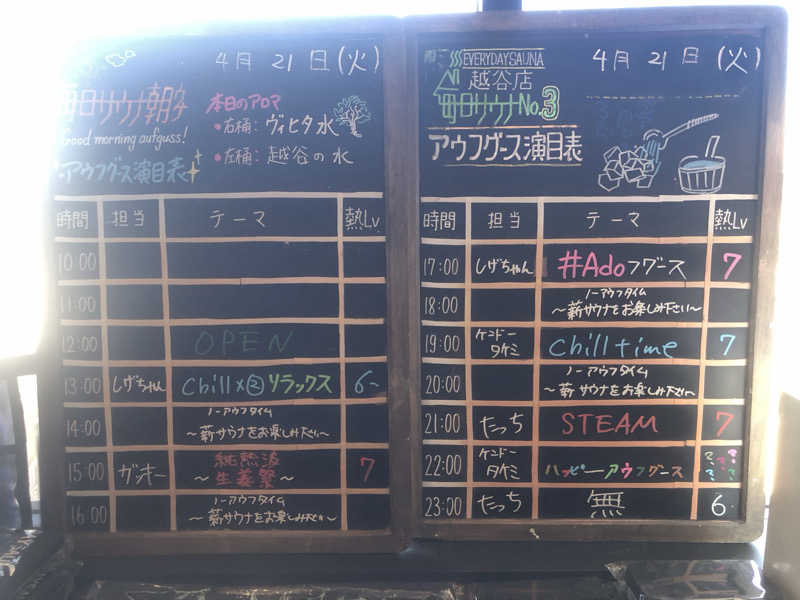 4月 21日(火)
毎日サウナ朝タ
Good morning aufguss!
アウフグース演目表
本日のアロマ
・右桶: ヴィヒタ水
・左桶: 越谷の水
時間 担当 テーマ 熱Lv
10:00
11:00
12:00 OPEN
13:00 しげちゃん Chill×② リラックス 6~
14:00 ノーアウフタイム
~薪サウナをお楽しみ下さい~
15:00 ガッキー 純熱波 7
16:00 ノーアウフタイム
~薪サウナをお楽しみ下さい~
4月 21日(火)
EVERYDAYSAUNA
越谷店
毎日サウナNo.3
アウフグース演目表
時間 担当 テーマ 熱Lv
17:00 しげちゃん #Adoフグース 7
18:00 ノーアウフタイム
~薪サウナをお楽しみ下さい~
19:00 ケンドータケミ Chill time 7
20:00 ノーアウフタイム
~薪サウナをお楽しみ下さい~
21:00 たっち STEAM 7
22:00 ケンドータケミ ハッピーアウフグース ???
23:00 たっち 無 6